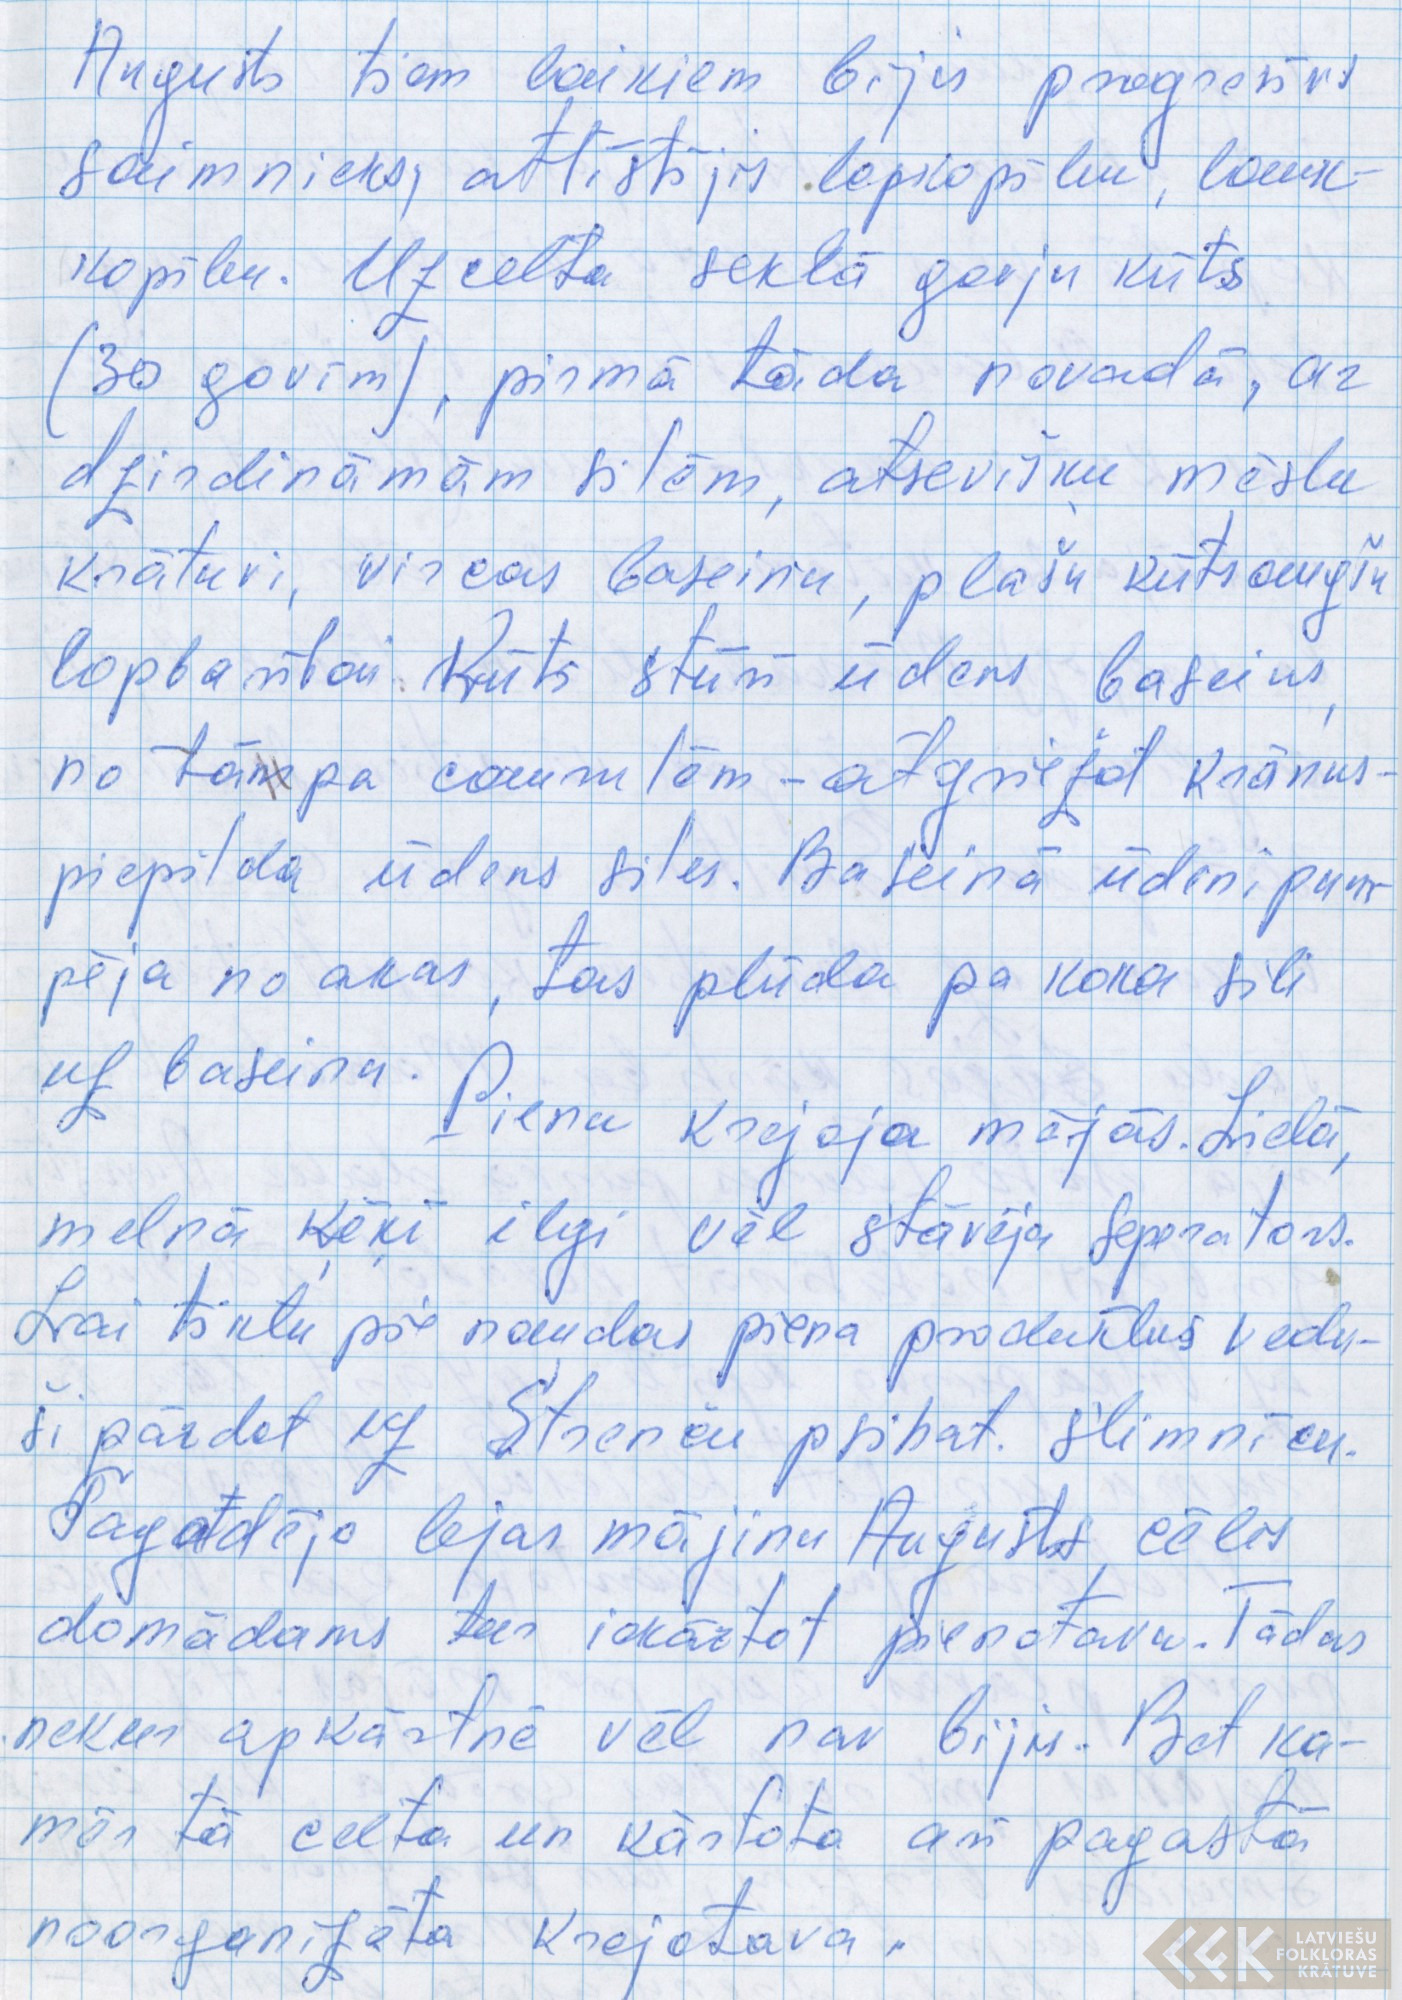 Augusts tiem laikiem bijis progresīvs
saimnieks, attīstījis lopkopību, lauk-
kopību. Uzcelta seklā govju kūts
(30 govīm), pirmā tāda novadā, ar
dzirdināmām silēm, atsevišķu mēslu
krātuvi, vircas baseinu, plašu kūtsaugšu
lopbarībai. Kūts stūrī ūdens baseins,
no tā pa caurulēm - atgriežot krānus -
piepilda ūdens siles. Baseinā ūdeni pum-
pēja no akas, tas plūda pa koka sili
uz baseinu.
Pienu krejoja mājās. Lielā,
melnā ķēķī ilgi vēl stāvēja seperators.
Lai tiktu pie naudas piena produktus vedu-
ši pārdot uz Strenču psihat. slimnīcu.
Tagadējo lejas mājiņu Augusts cēlis
domādams tur iekārtot pienotavu. Tādas
nekur apkārtnē vēl nav bijis. Bet ka-
mēr tā celta un kārtota arī pagastā
noorganizēta krejotava.
LATVIEŠU
FOLKLORAS
KRĀTUVE